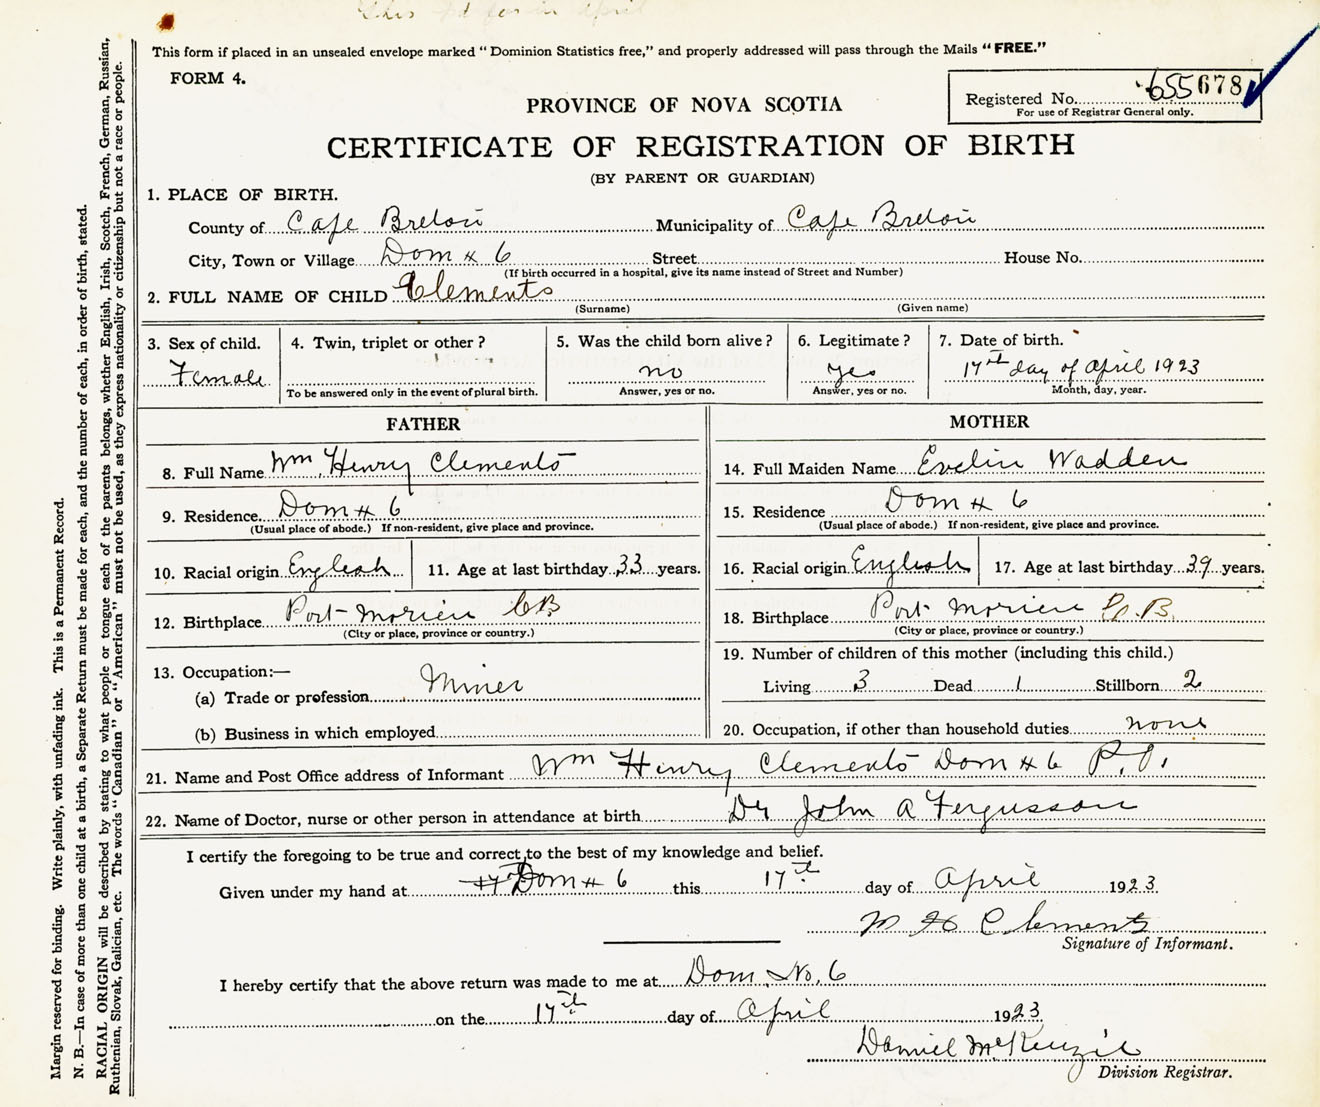 This form if placed in an unsealed envelope marked “Dominion Statistics free,” and properly addressed will pass through the Mails “FREE.”
FORM 4.
Registered No. 655678
For use of Registrar General only.
PROVINCE OF NOVA SCOTIA
CERTIFICATE OF REGISTRATION OF BIRTH
(BY PARENT OR GUARDIAN)
1. PLACE OF BIRTH.
County of Cape Breton Municipality of Cape Breton
City, Town or Village Dom # 6 Street House No.
(If birth occurred in a hospital, give its name instead of Street and Number)
2. FULL NAME OF CHILD Clements
(Surname) (Given name)
3. Sex of child. 4. Twin, triplet or other? 5. Was the child born alive? 6. Legitimate? 7. Date of birth.
Female no yes 17th day of April 1923
To be answered only in the event of plural birth. Answer, yes or no. Answer, yes or no. Month, day, year.
FATHER MOTHER
8. Full Name Wm Henry Clements 14. Full Maiden Name Evelin Wadden
9. Residence Dom # 6 15. Residence Dom # 6
(Usual place of abode.) If non-resident, give place and province. (Usual place of abode.) If non-resident, give place and province.
10. Racial origin English 11. Age at last birthday 33 years. 16. Racial origin English 17. Age at last birthday 39 years.
12. Birthplace Port Morien CB 18. Birthplace Port Morien C.B.
(City or place, province or country.) (City or place, province or country.)
13. Occupation:— 19. Number of children of this mother (including this child.)
(a) Trade or profession Miner Living 3 Dead 1 Stillborn 2
(b) Business in which employed 20. Occupation, if other than household duties none
21. Name and Post Office address of Informant Wm Henry Clements Dom # 6 P.O.
22. Name of Doctor, nurse or other person in attendance at birth Dr John A Fergusson
I certify the foregoing to be true and correct to the best of my knowledge and belief.
Given under my hand at 17th Dom # 6 this 17th day of April 1923
W H Clements
Signature of Informant.
I hereby certify that the above return was made to me at Dom. No. 6
on the 17th day of April 1923
Daniel McKenzie
Division Registrar.
Margin reserved for binding. Write plainly, with unfading ink. This is a Permanent Record.
N. B.—In case of more than one child at a birth, a Separate Return must be made for each, and the number of each, in order of birth, stated.
RACIAL ORIGIN will be described by stating to what people or tongue each of the parents belongs, whether English, Irish, Scotch, French, German, Russian,
Ruthenian, Slovak, Galician, etc. The words “Canadian” or “American” must not be used, as they express nationality or citizenship but not a race or people.